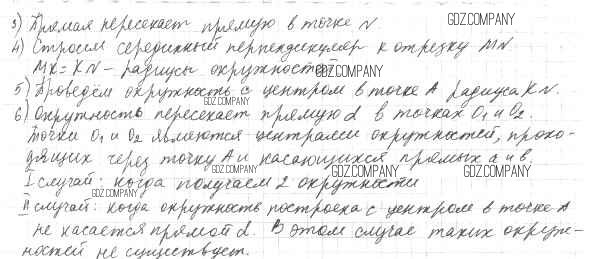 3) Прямая пересекает прямую в точке N. GDZ.COMPANY
4) Строим серединный перпендикуляр к отрезку MN
MK = KN – радиусы окружностей GDZ.COMPANY
5) Проведём окружность с центром в точке A радиуса KN.
GDZ.COMPANY
6) Окружность пересекает прямую d в точках O₁ и O₂.
Точки O₁ и O₂ являются центрами окружностей, прохо-
дящих через точку A и касающихся прямых a и b.
GDZ.COMPANY GDZ.COMPANY GDZ.COMPANY
I случай: когда получаем 2 окружности
GDZ.COMPANY
II случай: когда окружность построена с центром в точке A
не касается прямой d. В этом случае таких окруж-
ностей не существует.